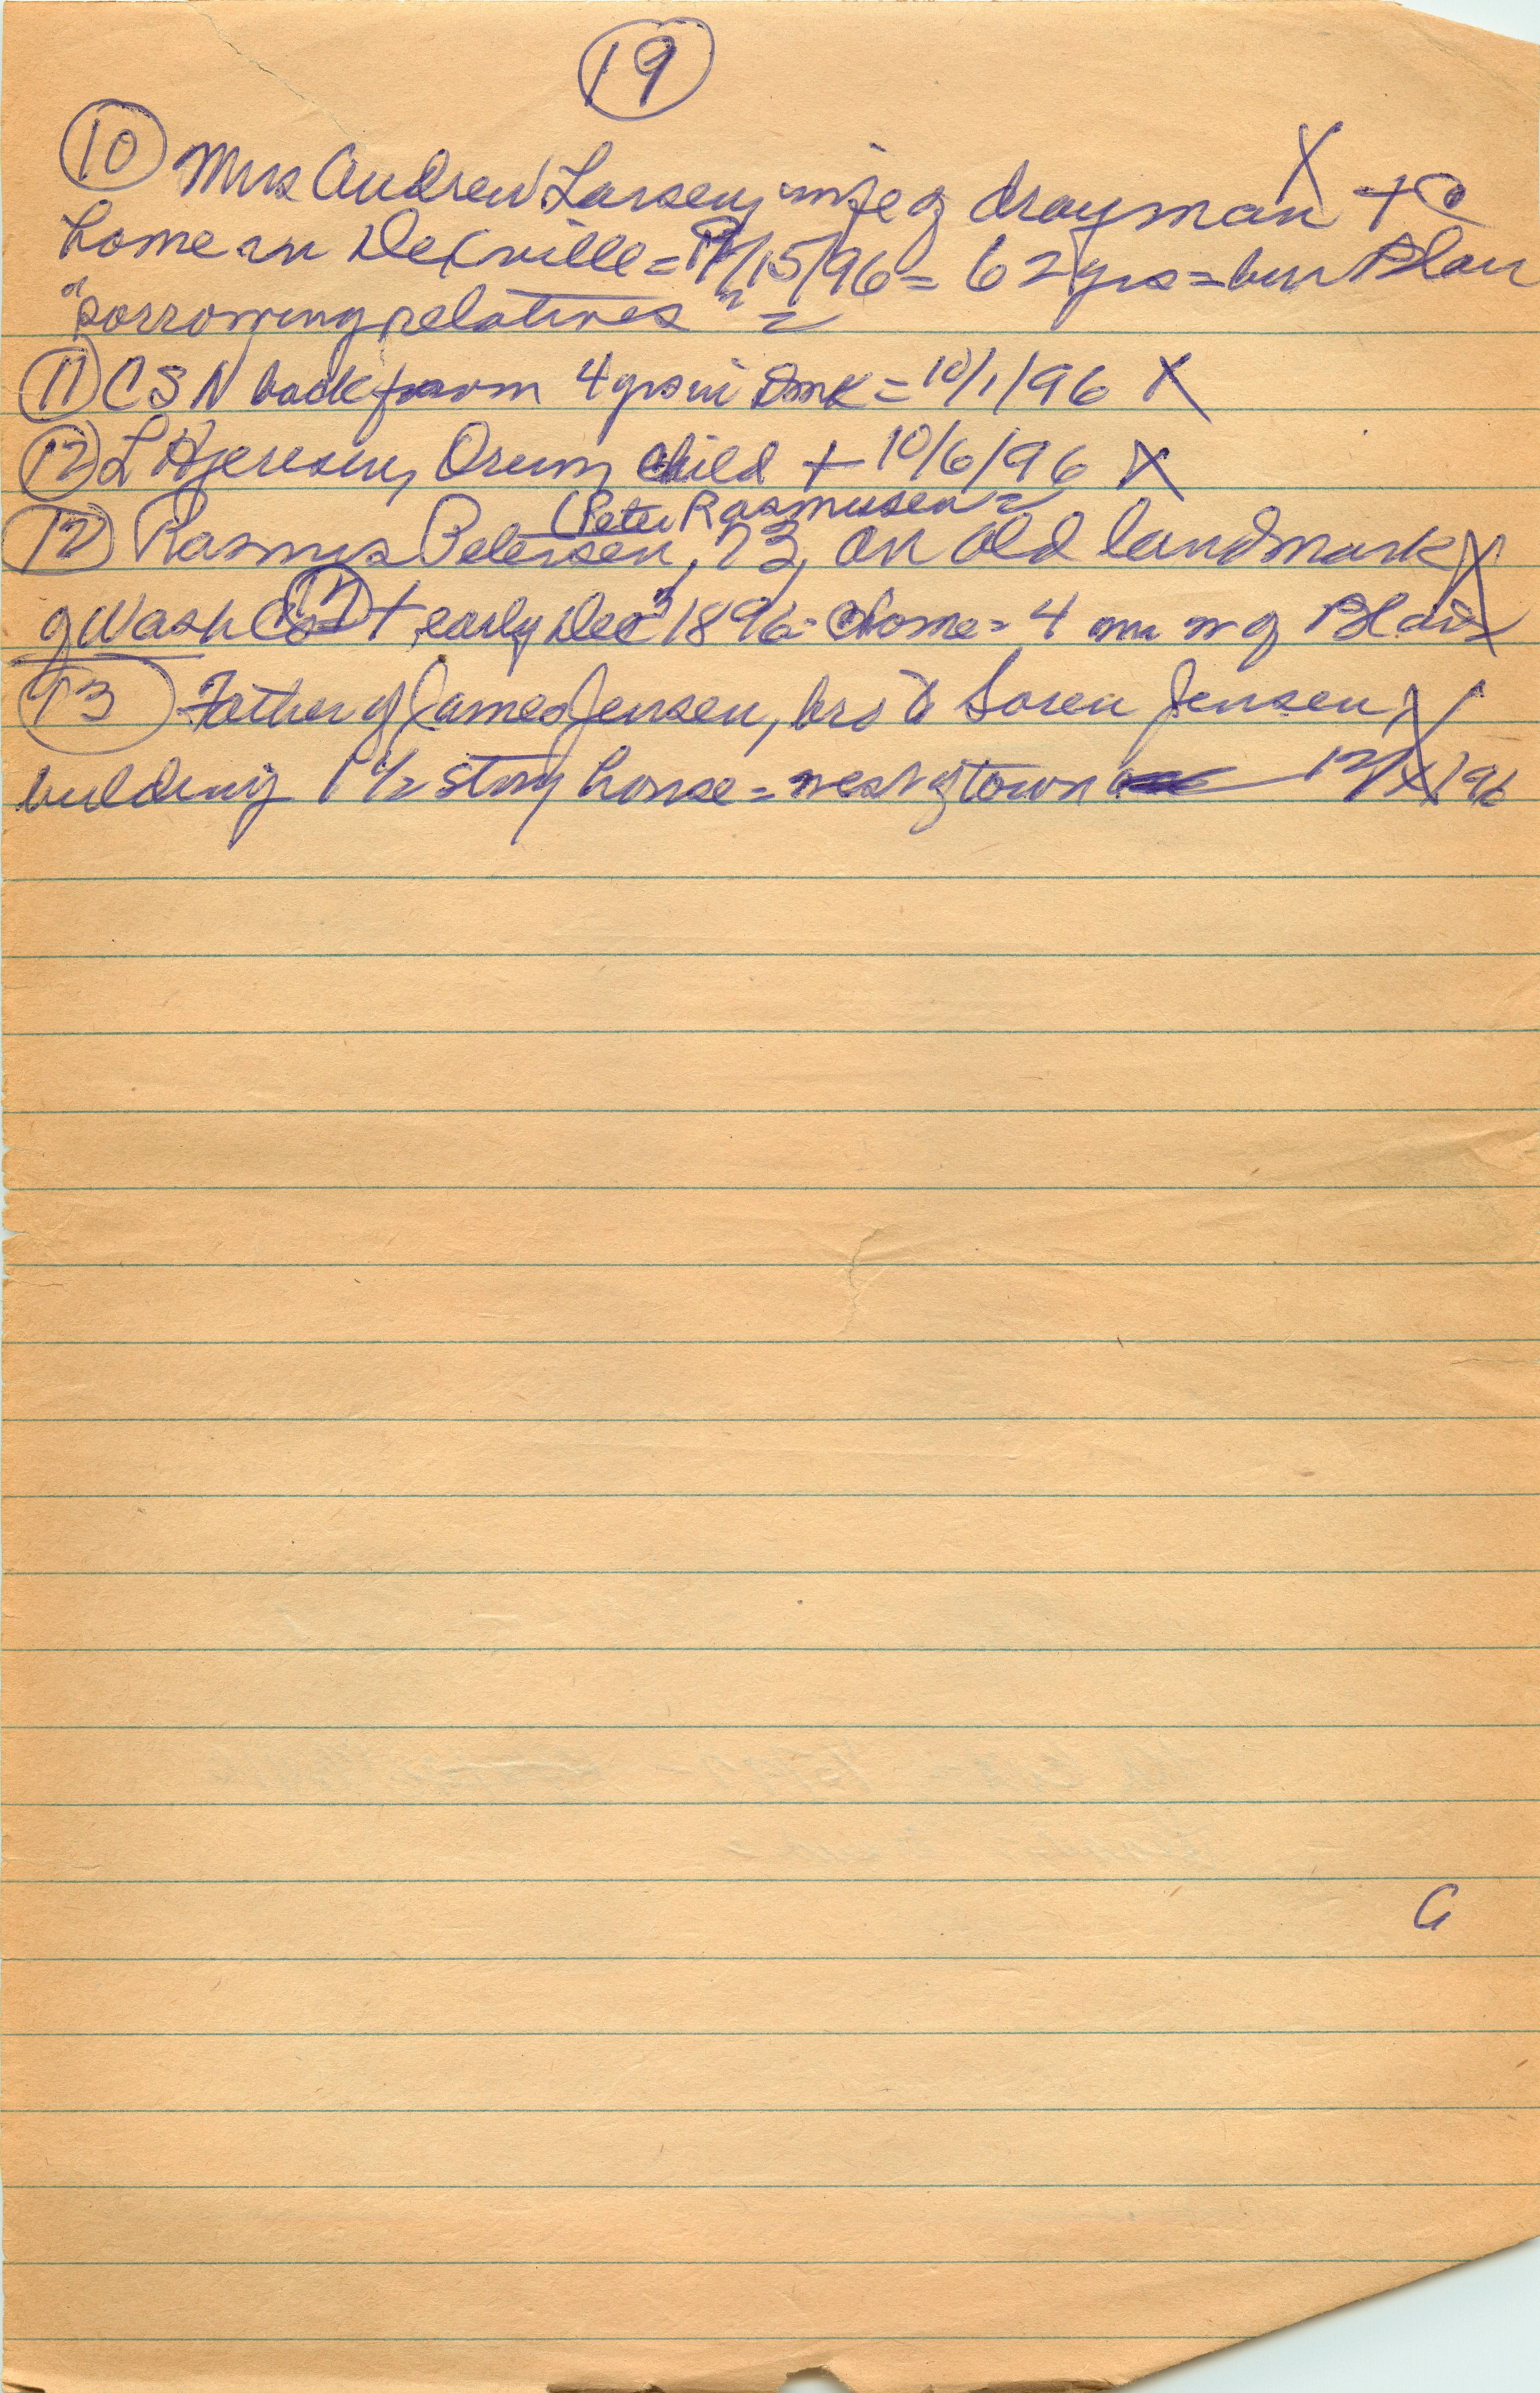 19
10 Mrs Andrew Larsen, wife of drayman + @
home in Dexville = 11/15/96 = 62 yrs = bur Blair
"sorrowing relatives" =
11 CSN back from 4 yrs in Dmk = 10/1/96 X
12 L Hjeresen, Orum, child + 10/6/96 X
(Peter Rasmussen =
12 Rasmus Petersen, 73, an old landmark X
of Wash Co = 12 + early Dec 1896 = home = 4 mi nw of Blair
13 Father of James Jensen, bro to Soren Jensen,
building 1 1/2 story house = west of town 12/ /96
G